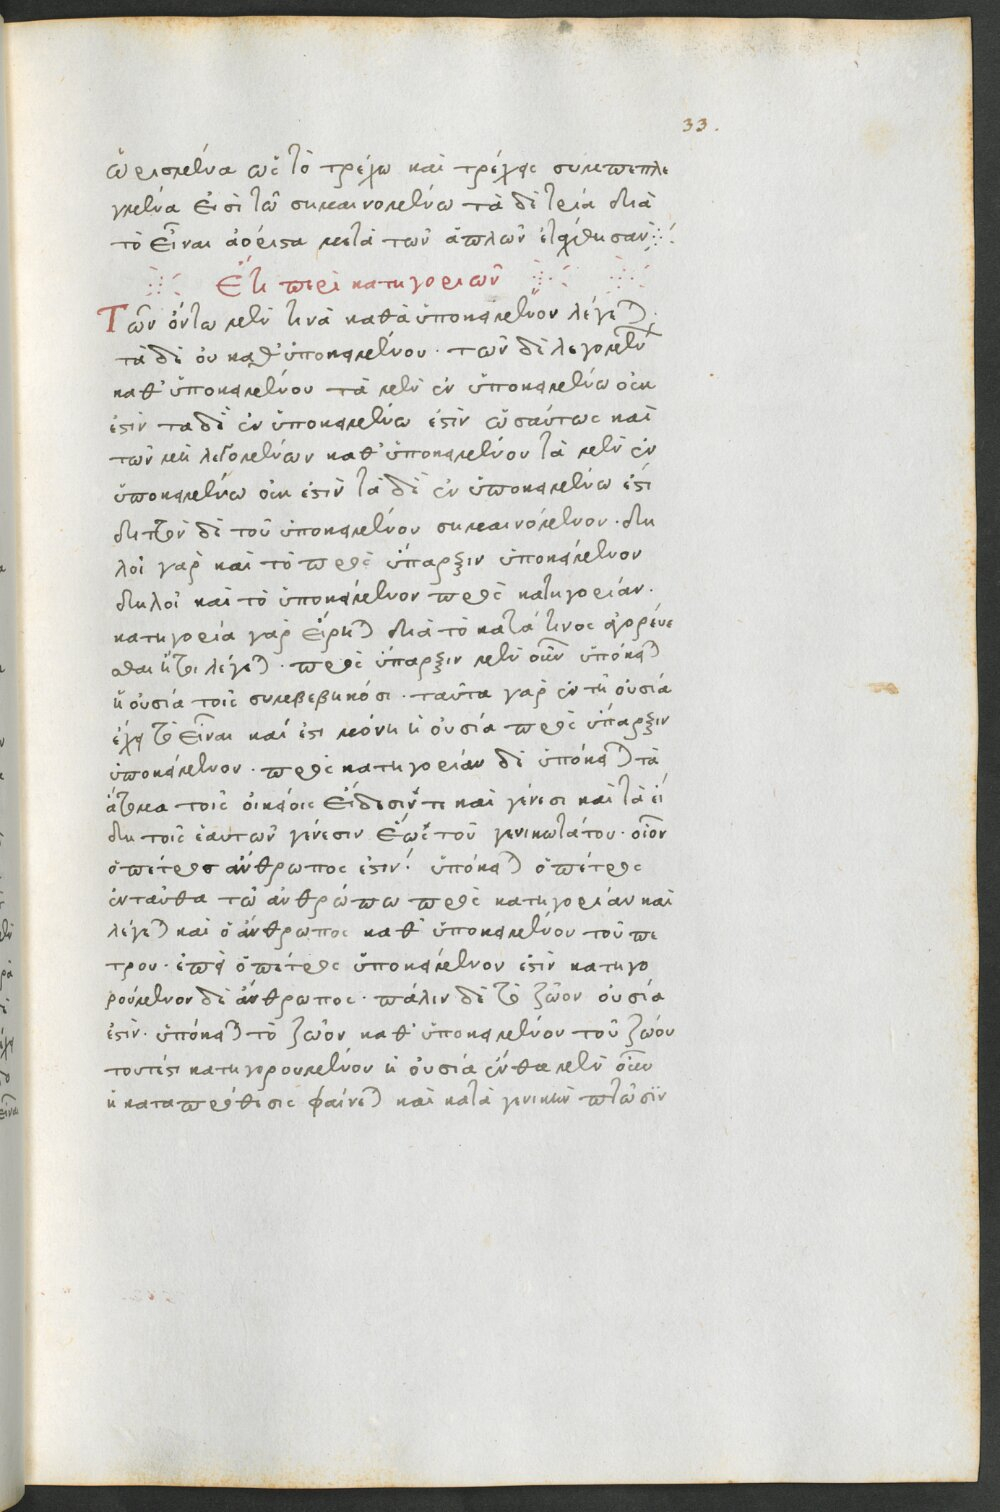 33.
ὡρισμένα ὡς τὸ τρέχω καὶ τρέχεις συμπεπλε
γμένα εἰσὶ τῶ σημαινομένω τὰ δὲ τρία διὰ
τὸ εἶναι ἀόριστα μετὰ τῶν ἁπλῶν ἐτάχθησαν
Ἔτι περὶ κατηγοριῶν
Τῶν ὄντω μὲν τινὰ καθὰ ὑποκειμένον λέγεται
τὰ δὲ οὐ καθ' ὑποκειμένου · τῶν δὲ λεγομένων
καθ' ὑποκειμένου τὰ μὲν ἐν ὑποκειμένω οὐκ
ἐστὶν τα δὲ ἐν ὑποκειμένω ἐστὶν ὡσαύτως καὶ
τῶν μὴ λεγομένων καθ' ὑποκειμένου τὰ μὲν ἐν
ὑποκειμένω οὐκ ἐστὶν τὰ δὲ ἐν ὑποκειμένω ἐστὶ
διττὸν δὲ τοῦ ὑποκειμένου σημαινόμενον · δη
λοῖ γὰρ καὶ τὸ πρὸς ὕπαρξιν ὑποκείμενον
δηλοῖ καὶ τὸ ὑποκείμενον πρὸς κατηγορίαν ·
κατηγορία γὰρ εἴρηται διὰ τὸ κατά τινος ἀγορεύε
σθαι ἤτοι λέγεται · πρὸς ὕπαρξιν μὲν οὖν ὑπόκειται
ἡ οὐσία τοῖς συμβεβηκόσι · ταῦτα γὰρ ἐν τῆ οὐσία
ἔχει τὸ εἶναι καί ἐστι μόνη ἡ οὐσία πρὸς ὕπαρξιν
ὑποκείμενον · πρὸς κατηγορίαν δὲ ὑπόκειται τὰ
ἄτομα τοῖς οἰκείοις εἴδεσίν τε καὶ γένεσι καὶ τὰ εἴ
δη τοῖς ἑαυτῶν γένεσιν ἕως τοῦ γενικωτάτου · οἷον
ὁ πέτρος ἄνθρωπος ἐστιν · ὑπόκειται ὁ πέτρος
ἐνταῦθα τῶ ἀνθρώπω πρὸς κατηγορίαν καὶ
λέγεται καὶ ὁ ἄνθρωπος καθ' ὑποκειμένου τοῦ πέ
τρου · ἐπεὶ ὁ πέτρος ὑποκείμενον ἐστὶν κατηγο
ρούμενον δὲ ἄνθρωπος · πάλιν δὲ τὸ ζῶον οὐσία
ἐστὶν · ὑπόκειται τὸ ζῶον καθ' ὑποκειμένου τοῦ ζώου
τουτέστι κατηγορουμένου ἡ οὐσία ἔνθα μὲν οὖν
ἡ κατα πρόθεσις φαίνεται καὶ κατὰ γενικὴν πτῶσιν